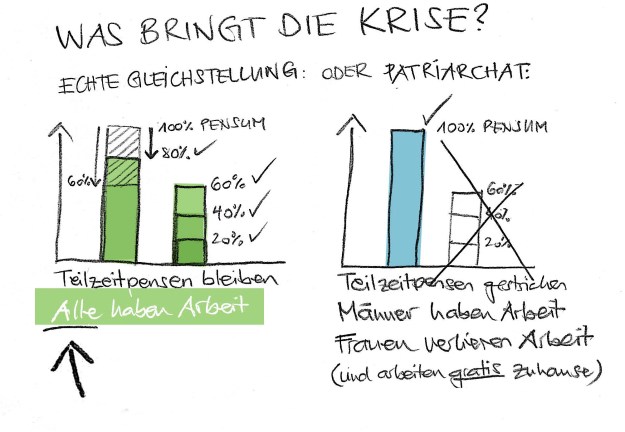 WAS BRINGT DIE KRISE?
ECHTE GLEICHSTELLUNG: ODER PATRIARCHAT:
100% PENSUM
80% ✓
60%
60% ✓
40% ✓
20% ✓
Teilzeitpensen bleiben
Alle haben Arbeit
✓
100% PENSUM
60%
40%
20%
Teilzeitpensen gestrichen
Männer haben Arbeit
Frauen verlieren Arbeit
(und arbeiten gratis zuhause)